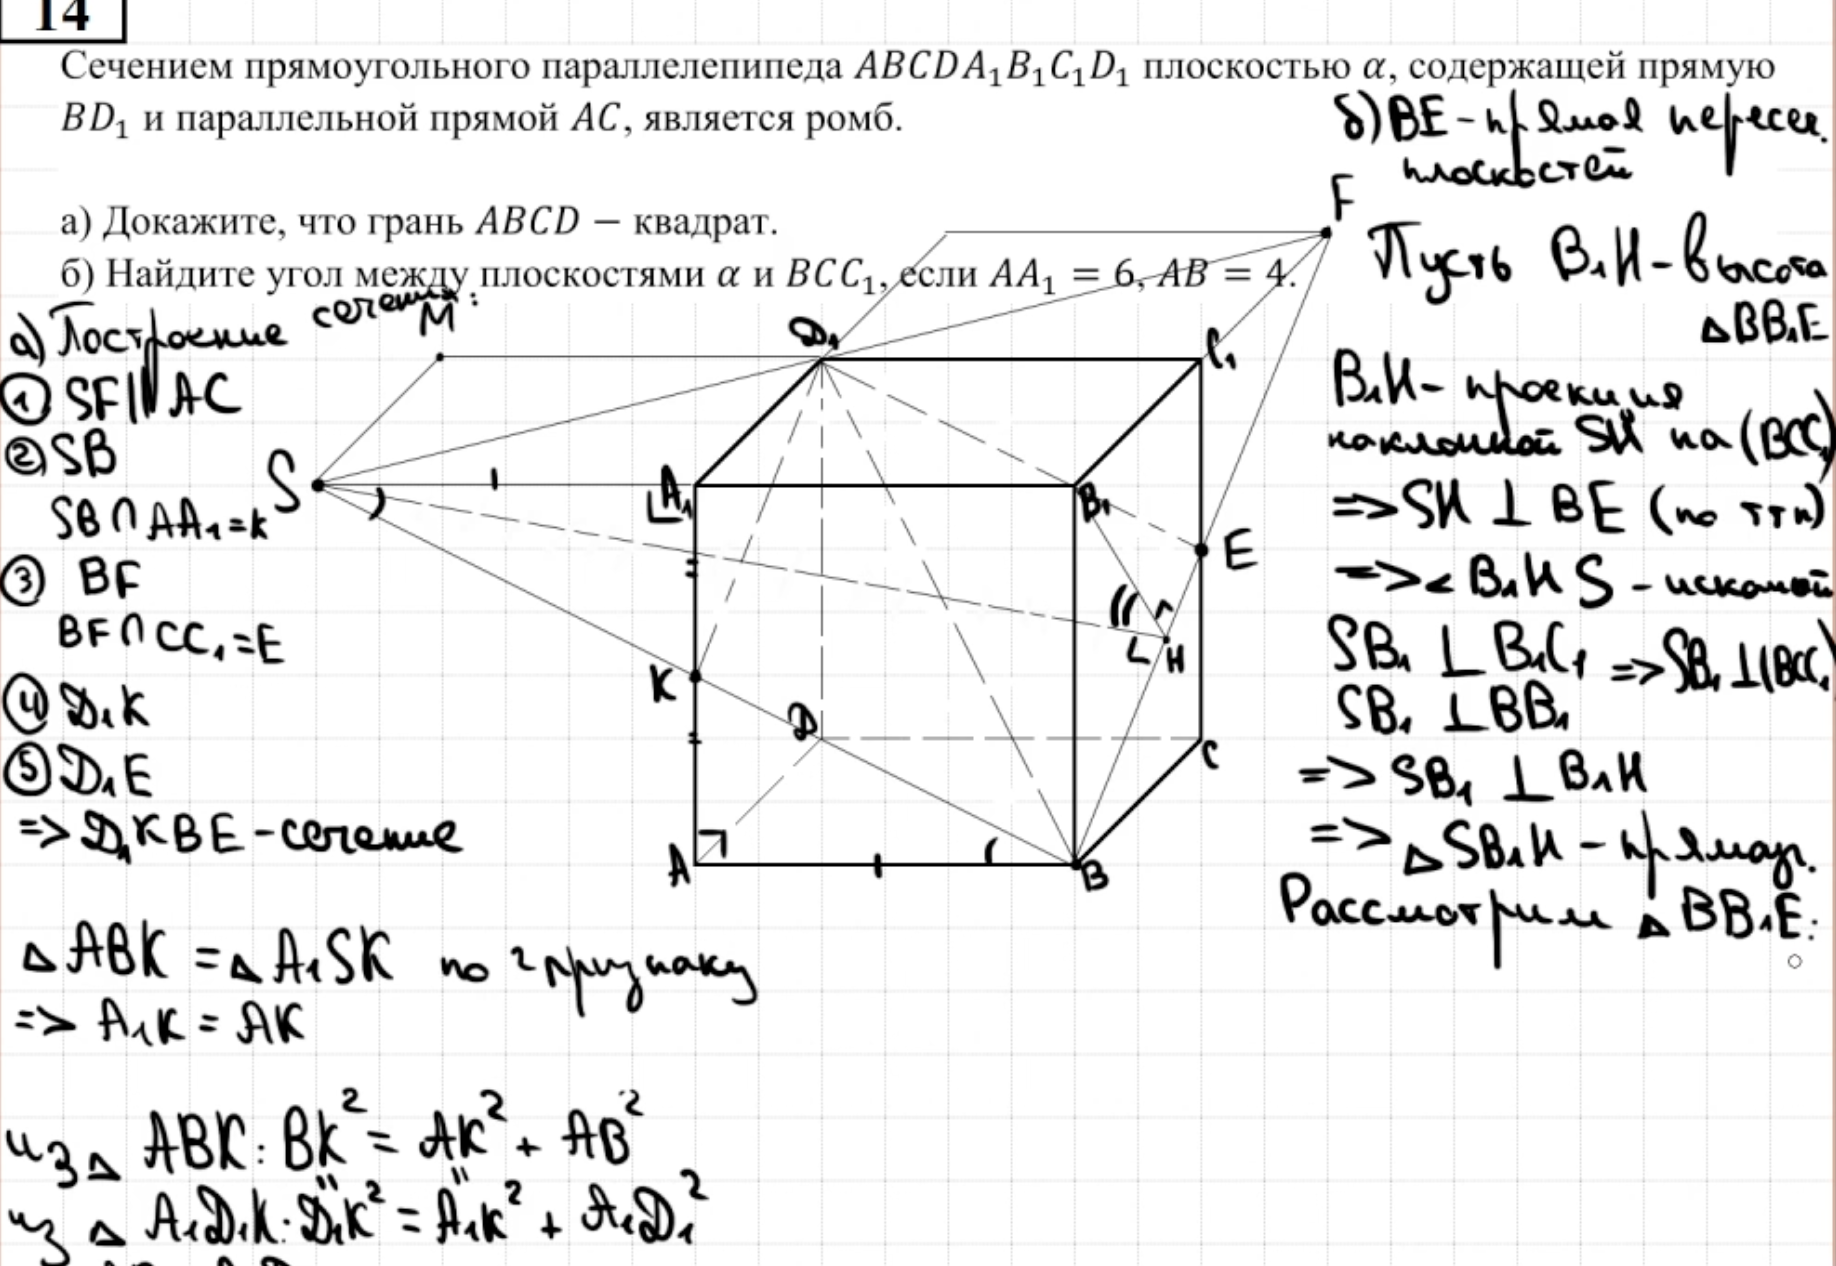 14
Сечением прямоугольного параллелепипеда ABCDA₁B₁C₁D₁ плоскостью α, содержащей прямую
BD₁ и параллельной прямой AC, является ромб.
а) Докажите, что грань ABCD − квадрат.
б) Найдите угол между плоскостями α и BCC₁, если AA₁ = 6, AB = 4.
а) Построение сечения:
① SF || AC
② SB
SB ∩ AA₁ = K
③ BF
BF ∩ CC₁ = E
④ D₁K
⑤ D₁E
=> D₁KBE - сечение
△ ABK = △ A₁SK по 2 признаку
=> A₁K = AK
из △ ABK: BK² = AK² + AB²
" "
из △ A₁D₁K: D₁K² = A₁K² + A₁D₁²
M
S
D₁
F
A₁
B₁
C₁
E
K
H
D
C
A
B
б) BE - прямая пересеч.
плоскостей
Пусть B₁H - высота
△BB₁E
B₁H - проекция
наклонной SH на (BCC₁)
=> SH ⊥ BE (по ттп)
=> ∠ B₁HS - искомый
SB₁ ⊥ B₁C₁ => SB₁ ⊥ (BCC₁)
SB₁ ⊥ BB₁
=> SB₁ ⊥ B₁H
=> △ SB₁H - прямоуг.
Рассмотрим △ BB₁E: